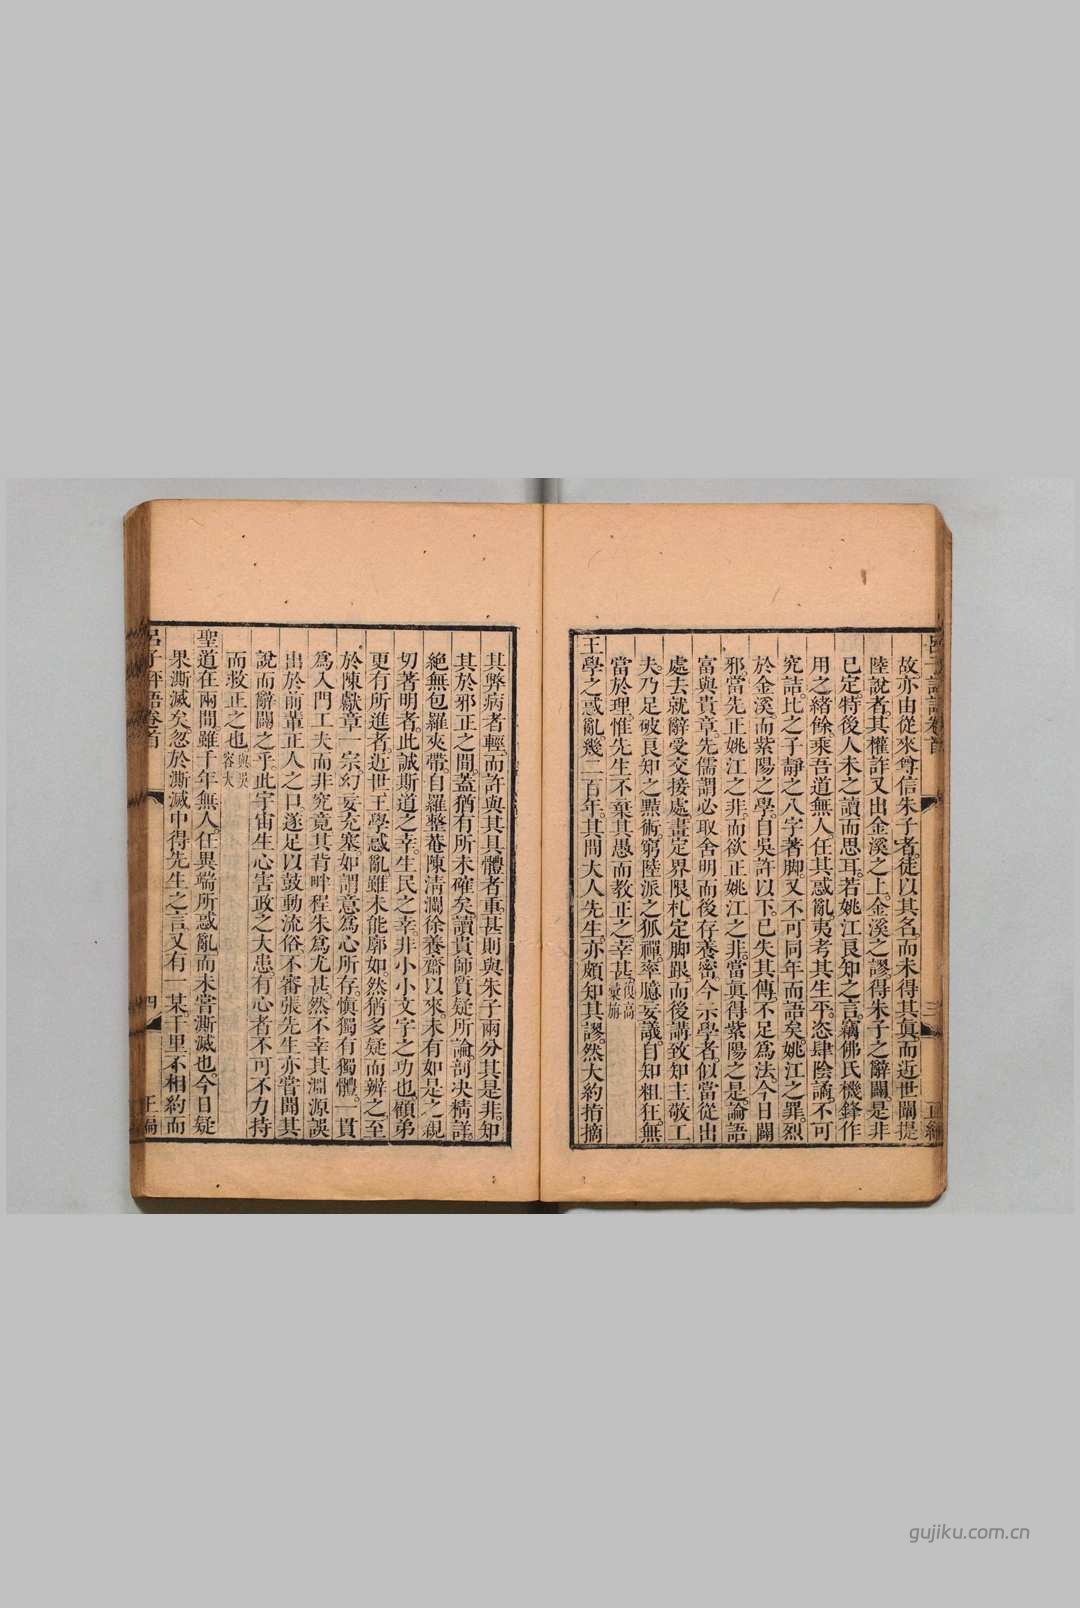 故亦由從來尊信朱子者。徒以其名。而未得其真。而近世闢提
陸說者。其權詐又出金溪之上。金溪之謬。得朱子之辭闢。是非
已定。特後人未之讀而思耳。若姚江良知之言。竊佛氏機鋒作
用之緒餘。乘吾道無人。任其惑亂。夷考其生平。恣肆陰譎。不可
究詰。比之子靜之八字著脚。又不可同年而語矣。姚江之罪。烈
於金溪。而紫陽之學。自吳許以下。已失其傳。不足為法。今日闢
邪。當先正姚江之非。而欲正姚江之非。當真得紫陽之是。論語
富與貴章。先儒謂必取舍明而後存養密。今示學者。似當從出
處去就辭受交接處。畫定界限。札定脚跟。而後講致知主敬工
夫。乃足破良知之黠術。窮陸派之狐禪。率臆妄議。自知粗狂。無
當於理。惟先生不棄其愚而教正之。幸甚。復高彙旃
王學之惑亂。幾二百年。其間大人先生亦頗知其謬。然大約指摘
呂子評語卷首
三
正編
其弊病者輕。而許與其具體者重。甚則與朱子兩分其是非。知
其於邪正之間。蓋猶有所未確矣。讀貴師質疑所論。剖决精詳。
絕無包羅夾帶。自羅整菴陳清瀾徐養齋以來。未有如是之親
切著明者。此誠斯道之幸。生民之幸。非小小文字之功也。顧弟
更有所進者。近世王學惑亂。雖未能廓如。然猶多疑而辨之。至
於陳獻章一宗。幻妄充塞。如謂意為心所存。愼獨有獨體。一貫
為入門工夫而非究竟。其背畔程朱為尤甚。然不幸其淵源誤
出於前輩正人之口。遂足以鼓動流俗。不審張先生亦嘗聞其
說而辭闢之乎。此宇宙生心害政之大患。有心者不可不力持
而救正之也。與施容大
聖道在兩間。雖千年無人。任異端所惑亂。而未嘗澌滅也。今日疑
果澌滅矣。忽於澌滅中得先生之言。又有一某。千里不相約而
呂子評語卷首
四